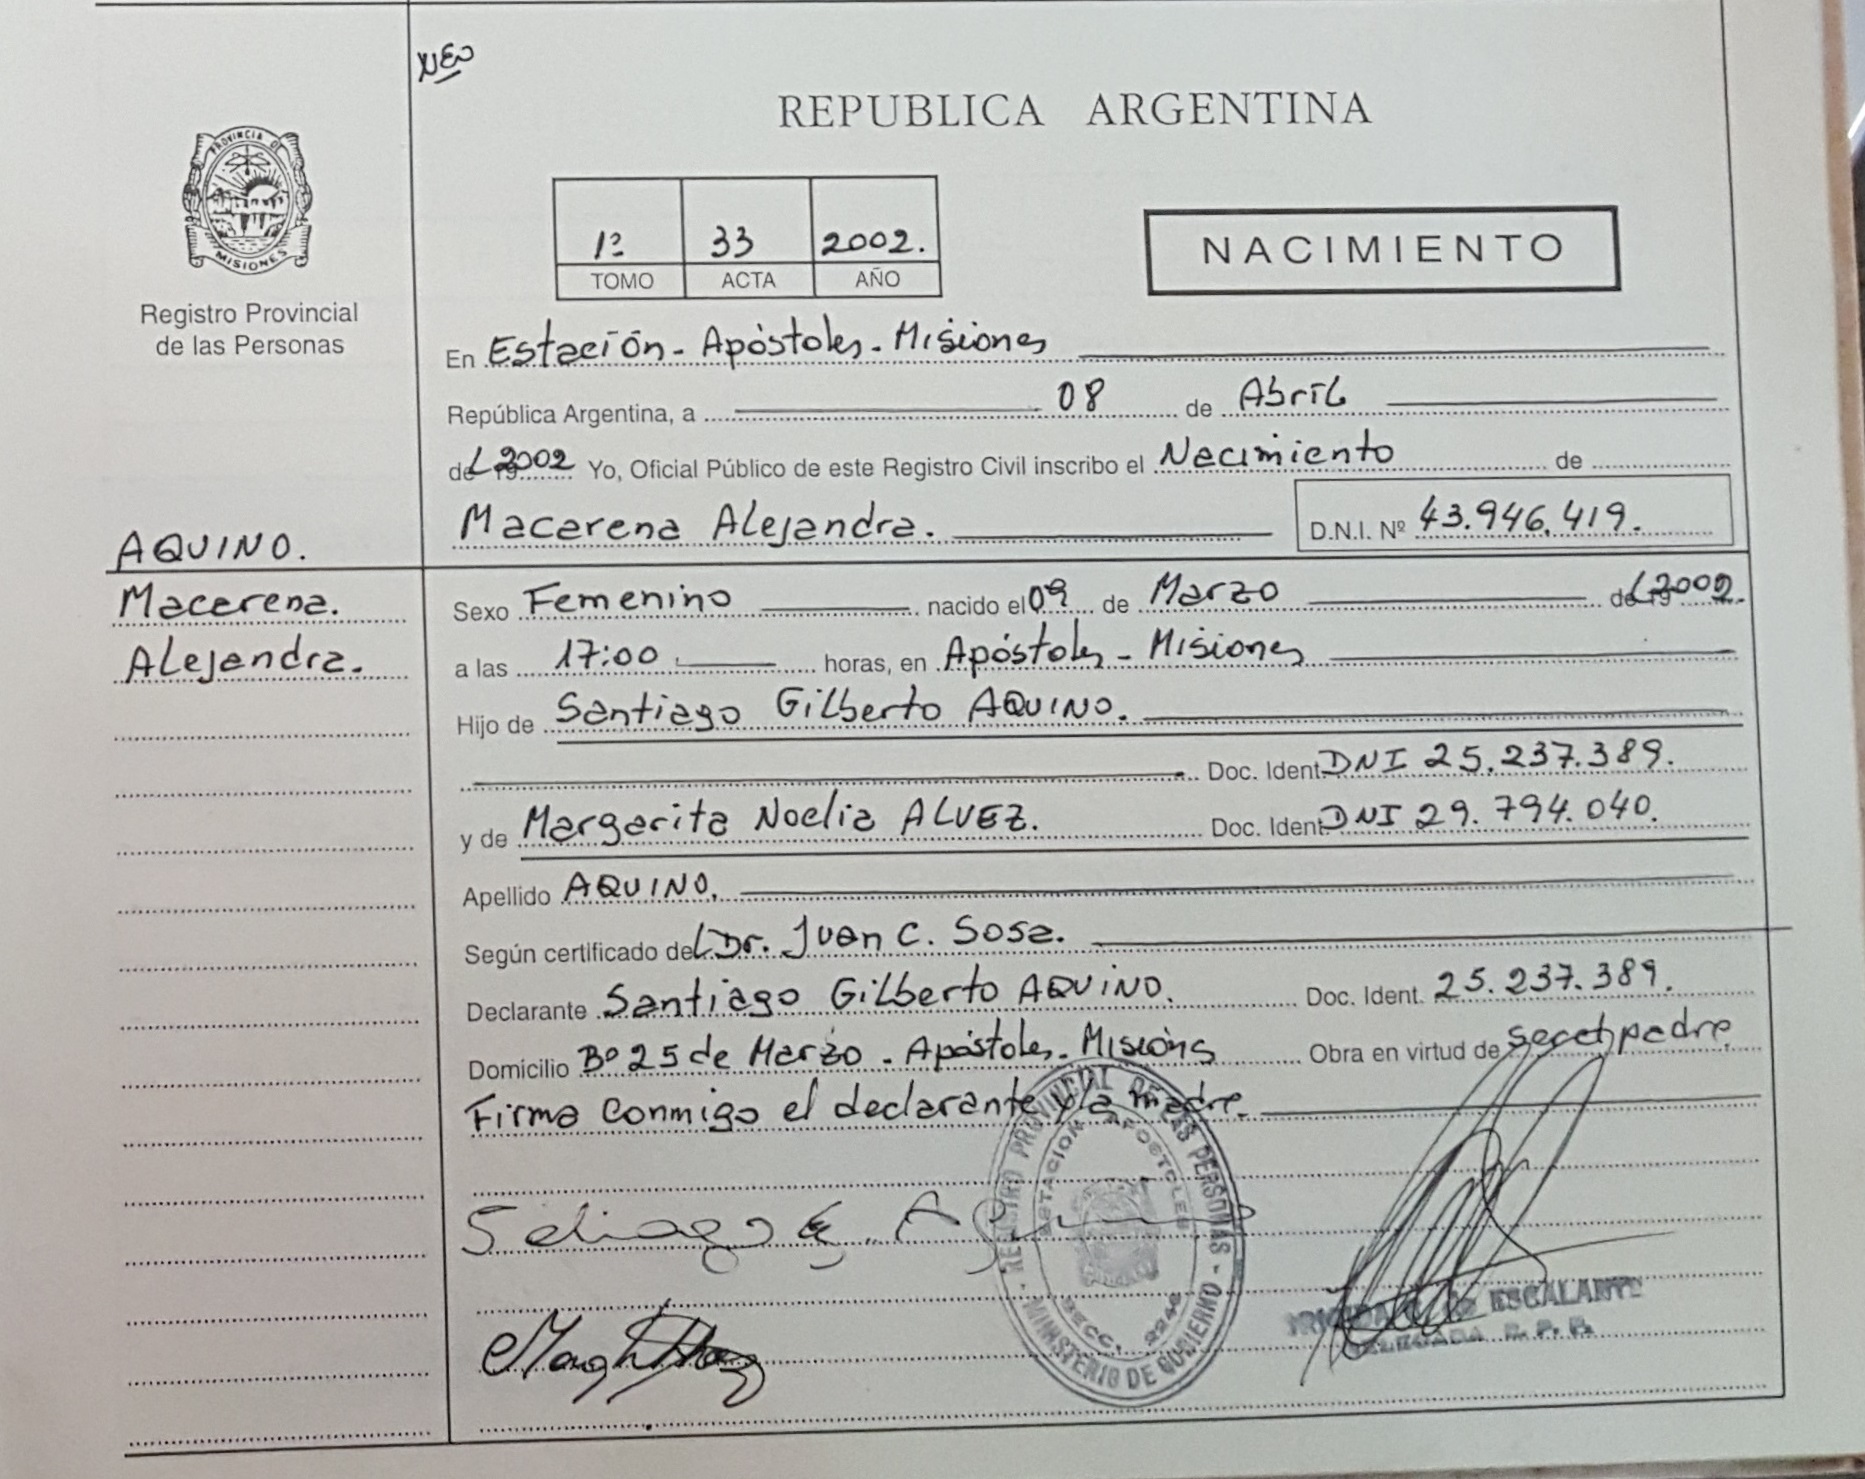 NEO
REPUBLICA ARGENTINA
PROVINCIA DE
MISIONES
Registro Provincial
de las Personas
1º 33 2002.
TOMO ACTA AÑO
NACIMIENTO
En Estación - Apóstoles - Misiones
República Argentina, a 08 de Abril
del 2002 Yo, Oficial Público de este Registro Civil inscribo el Nacimiento de
Macarena Alejandra. D.N.I. Nº 43.946.419.
AQUINO.
Macarena.
Alejandra.
Sexo Femenino nacido el 09 de Marzo del 2002.
a las 17:00 horas, en Apóstoles - Misiones
Hijo de Santiago Gilberto AQUINO.
Doc. Ident. DNI 25.237.389.
y de Margarita Noelia ALVEZ. Doc. Ident. DNI 29.794.040.
Apellido AQUINO.
Según certificado del Dr. Juan C. Sosa.
Declarante Santiago Gilberto AQUINO. Doc. Ident. 25.237.389.
Domicilio Bº 25 de Marzo - Apóstoles - Misiones Obra en virtud de ser el padre.
Firma conmigo el declarante y la madre.
REGISTRO PROVINCIAL DE LAS PERSONAS - MINISTERIO DE GOBIERNO -
ESTACION APOSTOLES
SECC. 2246
DE ESCALANTE
DELEGADA R. P. P.